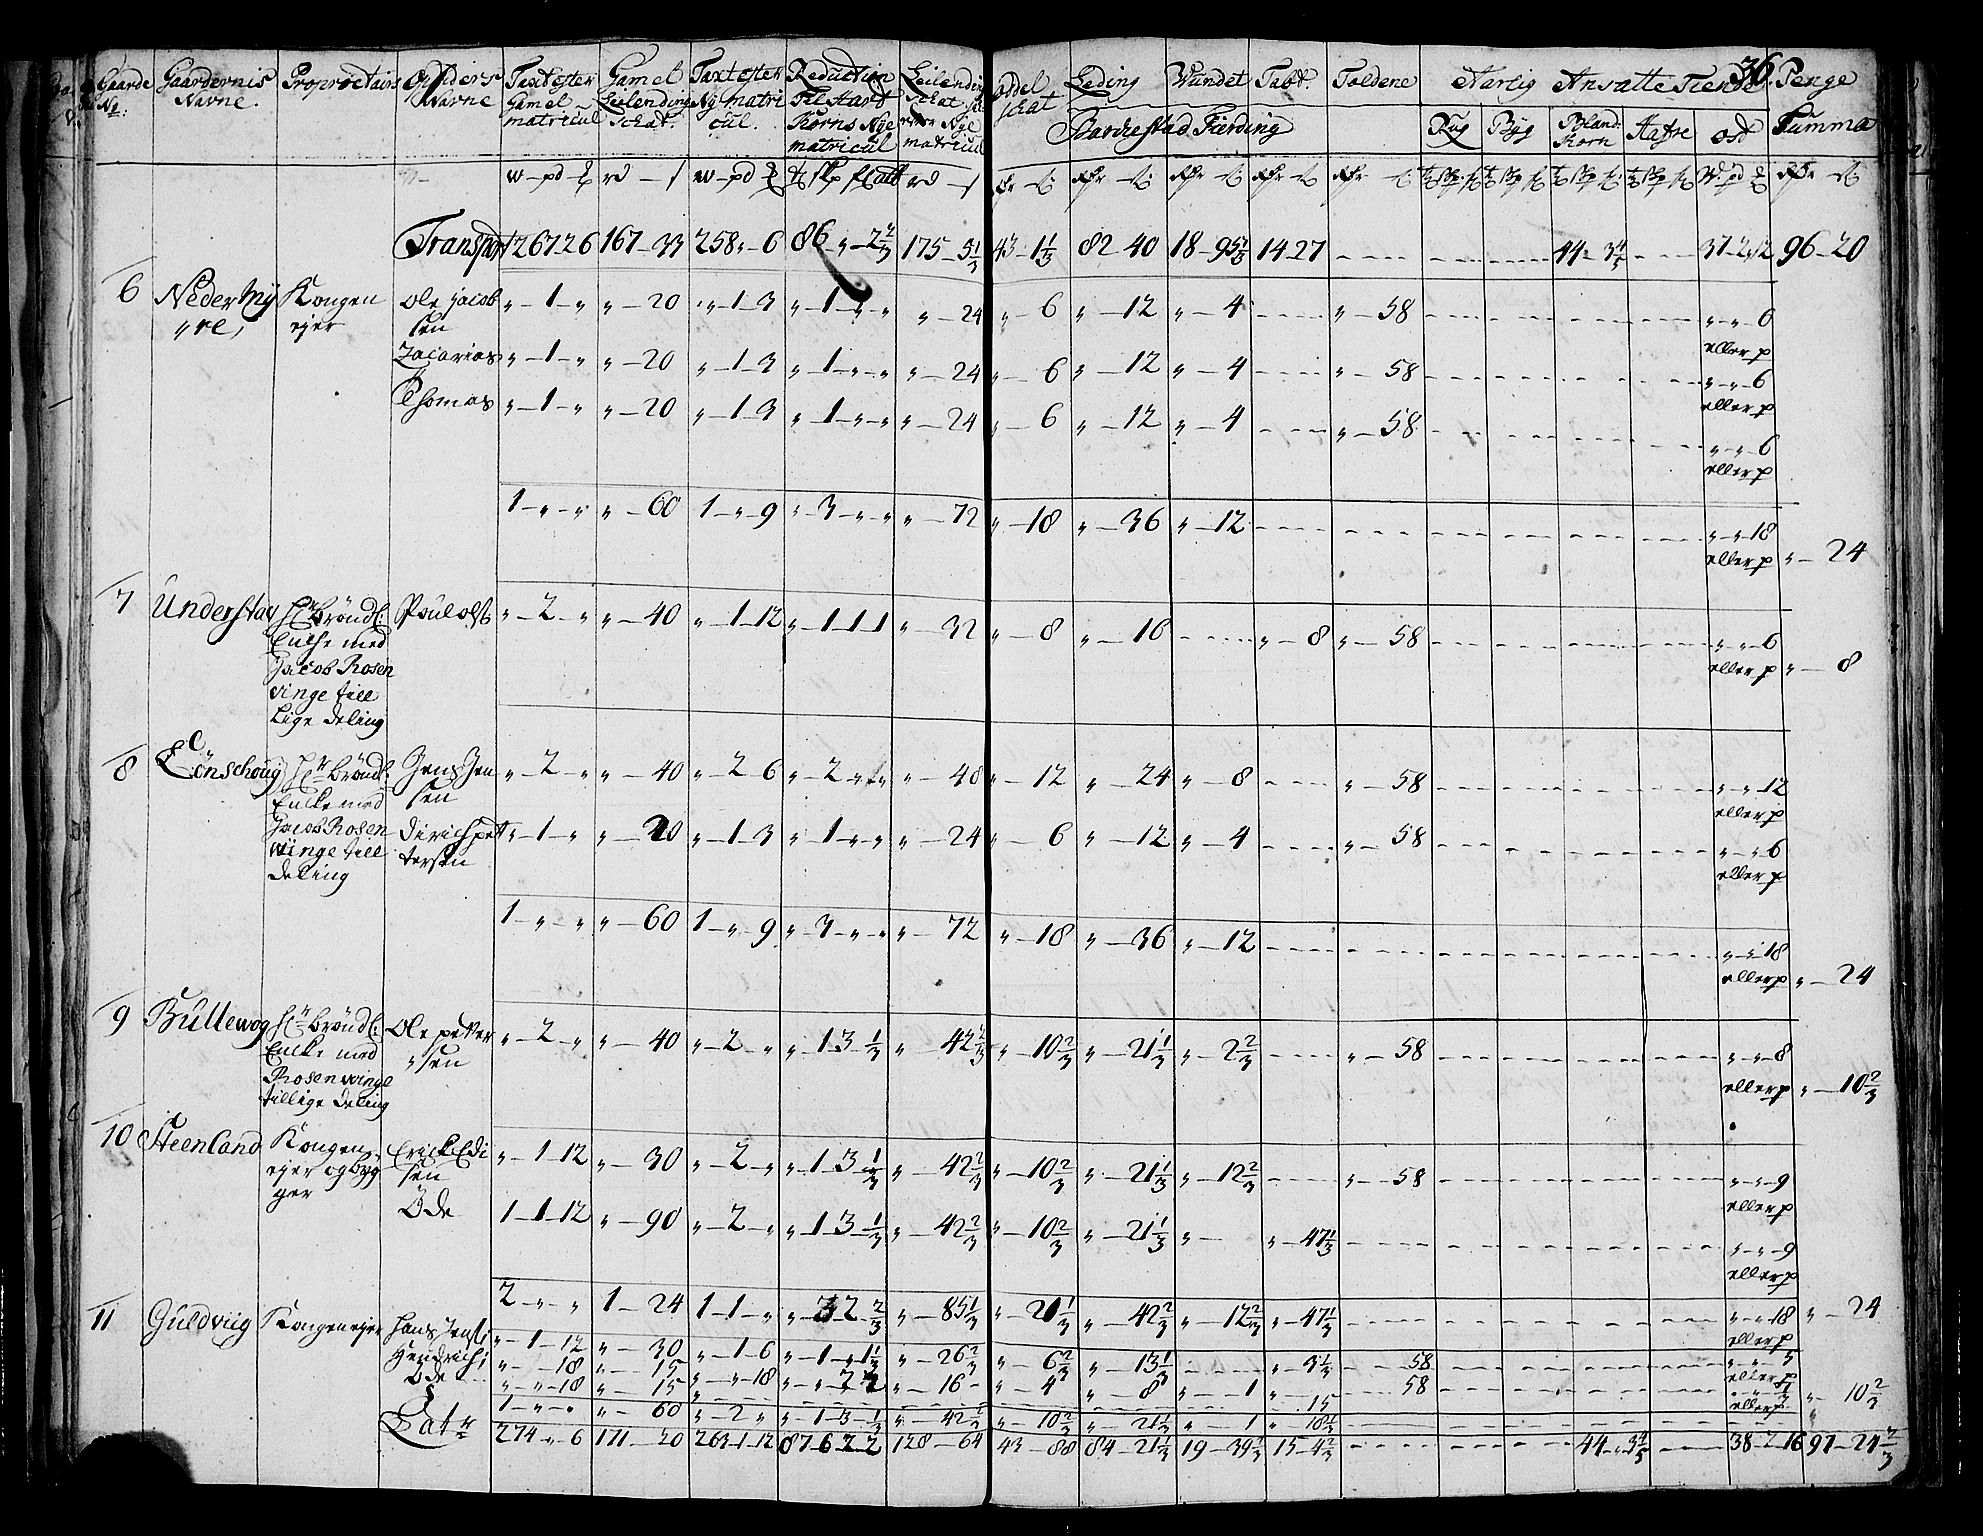 36.
Gaarde No: Gaardernis Navne. Proprietairs Opsiders Navne Taxt efter Gamel matricul Gamel Leilending Schat. Taxt efter Ny matricul. Reduction Til Hart Korns Nye matricul Leilending Schat efter Nye matricul Oddel schat Leding Wundet Tabt. Foldene Aarlig Ansatte Tiende Penge Summa
Barchestad Fierding
Rug Byg Bland Korn Hafre ost
Transport 267 2 6 167 — 33 258 „ — 6 86 „ — 2 2/3 175 — 5 1/3 43 — 1 1/3 82 — 40 18 — 95 1/3 14 — 27 44 — 3 4/5 37 — 2 12 96 — 20
6 Neder Myre, Kongen ejer Ole Jacobsen „ — 1 — „ „ — 20 „ — 1 3 „ — 1 — „ — „ „ — 24 „ — 6 „ — 12 „ — 4 „ — 58 „ — „ — 6 eller p
Zacarias „ — 1 — „ „ — 20 „ — 1 3 „ — 1 — „ — „ „ — 24 „ — 6 „ — 12 „ — 4 „ — 58 „ — „ — 6 eller p
Thomas „ — 1 — „ „ — 20 „ — 1 3 „ — 1 — „ — „ „ — 24 „ — 6 „ — 12 „ — 4 „ — 58 „ — „ — 6 eller p
1 — „ — „ „ — 60 1 — „ — 9 „ — 3 — „ — „ „ — 72 „ — 18 „ — 36 „ — 12 „ — „ — 18 eller p „ — 24
7 Understav Hr Bröndl: Encke med Jacob Rosenvinge till Lige deling Poul ols: „ — 2 — „ „ — 40 „ — 1 12 „ — 1 1 1 „ — 32 „ — 8 „ — 16 „ — 8 „ — 58 „ — „ — 6 eller p „ — 8
8 Lönschouij Hr Bröndl: Encke med Jacob Rosenwinge till deling Jens Jensen „ — 2 — „ „ — 40 „ — 2 6 „ — 2 — „ — „ „ — 48 „ — 12 „ — 24 „ — 8 „ — 58 „ — „ — 12 eller p
Dirich pettersen „ — 1 — „ „ — 20 „ — 1 3 „ — 1 — „ — „ „ — 24 — 6 „ — 12 „ — 4 „ — 58 „ — „ — 6 eller p
1 — „ — „ „ — 60 1 — „ — 9 „ — 3 — „ — „ „ — 72 „ — 18 „ — 36 „ — 12 „ — „ — 18 eller p „ — 24
9 Bullewog Hr Bröndl: Encke med Rosenwinge tillige deling Ole petersen „ — 2 — „ „ — 40 „ — 2 — „ „ — 1 3 1/3 „ — 42 2/3 „ — 10 2/3 „ — 21 1/3 „ — 2 2/3 „ — 58 „ — „ — 8 eller p „ — 10 2/3
10 Steenland Kongen ejer og bygger Erich Edisen „ — 1 12 „ — 30 „ — 2 — „ „ — 1 3 1/3 „ — 42 2/3 „ — 10 2/3 „ — 21 1/3 „ — 12 2/3 „ — 58 „ — „ — 9 eller p
Öde 1 — 1 12 „ — 90 „ — 2 — „ „ — 1 3 1/3 „ — 42 2/3 „ — 10 2/3 „ — 21 1/3 „ — „ — 47 1/3 „ — „ — 9 eller p
2 — „ — „ 1 — 24 1 — 1 — „ „ — 3 2 2/3 „ — 85 1/3 „ — 21 1/3 „ — 42 2/3 „ — 12 2/3 „ — 47 1/3 „ — „ — 18 eller p „ — 24
11 Guldviig Kongen ejer Hans Jens: „ — 1 — 12 „ — 30 „ — 1 — 6 „ — 1 — „ 1 1/3 „ — 26 2/3 „ — 6 2/3 „ — 13 1/3 „ — 3 1/3 58 „ — „ — 5 eller p
Hendrich: „ — „ — 18 „ — 15 „ — „ — 18 „ — „ 2 2 „ — 16 „ — 4 „ — 8 „ — 1 58 eller p
Öde „ — „ — 18 „ — 15 „ — 15
1 — „ — „ „ — 60 „ — 2 „ „ — 1 — 3 — 1/3 „ — 42 2/3 „ — 10 2/3 „ — 21 1/3 „ — 1 „ — 18 1/3 „ — 10 2/3
Lat: 274 „ 6 171 — 20 263 1 12 87 6 2 2 128 — 64 43 — 88 84 — 21 1/3 19 — 39 1/3 15 — 4 2/3 44 — 3 4/5 38 — 2 — 16 97 — 24 2/3